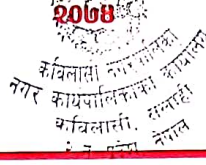 २०७४
कविलासी नगरपालिका
नगर कार्यपालिकाको कार्यालय
कविलासी, सर्लाही
नेपाल